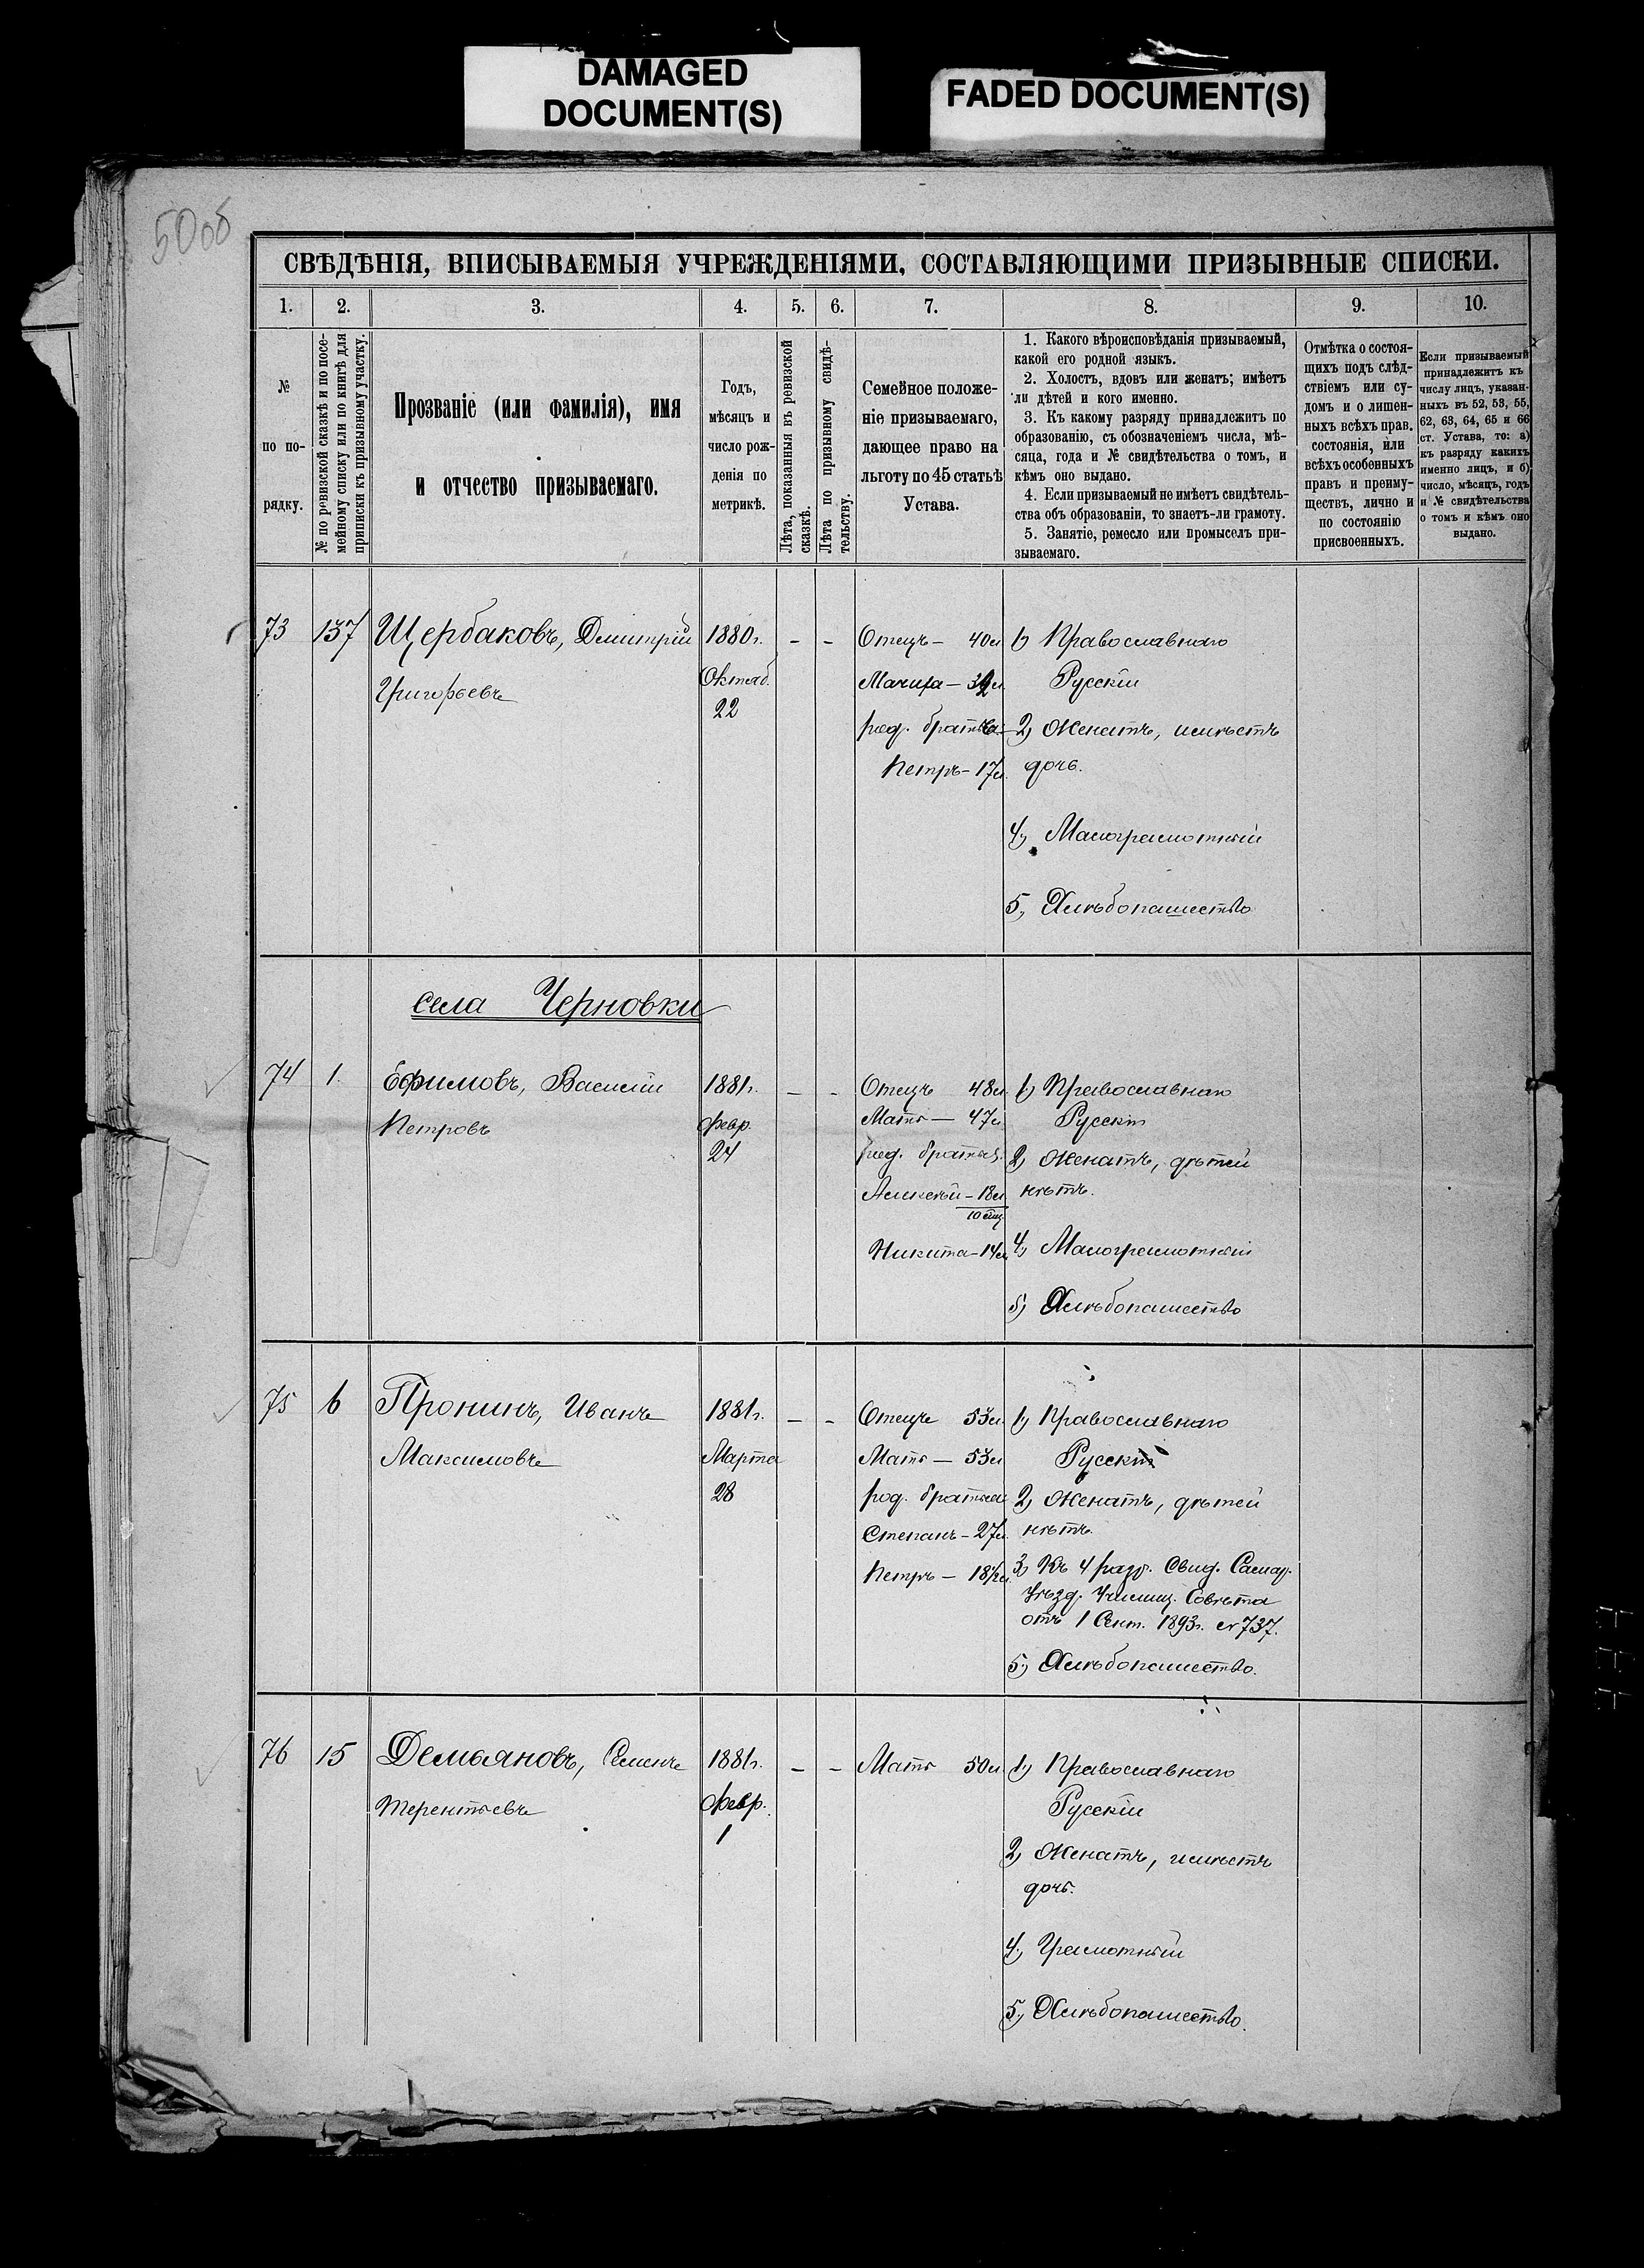 DAMAGED
DOCUMENT(S)
FADED DOCUMENT(S)
50об
СВѢДѢНІЯ, ВПИСЫВАЕМЫЯ УЧРЕЖДЕНІЯМИ, СОСТАВЛЯЮЩИМИ ПРИЗЫВНЫЕ СПИСКИ.
1. 2. 3. 4. 5. 6. 7. 8. 9. 10.
№
по по-
рядку.
№ по ревизской сказкѣ и по посе-
мейному списку или по книгѣ для
приписки къ призывному участку.
Прозваніе (или фамилія), имя
и отчество призываемаго.
Годъ,
мѣсяцъ и
число рож-
денія по
метрикѣ.
Лѣта, показанныя въ ревизской
сказкѣ.
Лѣта по призывному свидѣ-
тельству.
Семейное положе-
ніе призываемаго,
дающее право на
льготу по 45 статьѣ
Устава.
1. Какого вѣроисповѣданія призываемый,
какой его родной языкъ.
2. Холостъ, вдовъ или женатъ; имѣетъ
ли дѣтей и кого именно.
3. Къ какому разряду принадлежитъ по
образованію, съ обозначеніемъ числа, мѣ-
сяца, года и № свидѣтельства о томъ, и
кѣмъ оно выдано.
4. Если призываемый не имѣетъ свидѣтель-
ства объ образованіи, то знаетъ-ли грамоту.
5. Занятіе, ремесло или промыселъ при-
зываемаго.
Отмѣтка о состоя-
щихъ подъ слѣд-
ствіемъ или су-
домъ и о лишен-
ныхъ всѣхъ прав.
состоянія, или
всѣхъ особенныхъ
правъ и преиму-
ществъ, лично и
по состоянію
присвоенныхъ.
Если призываемый
принадлежитъ къ
числу лицъ, указан-
ныхъ въ 52, 53, 55,
62, 63, 64, 65 и 66
ст. Устава, то: а)
къ разряду какихъ
именно лицъ, и б)
число, мѣсяцъ, годъ
и № свидѣтельства
о томъ и кѣмъ оно
выдано.
73 137 Щербаковъ, Димитрій
Григорьевъ
1880г.
Октяб.
22
- -
Отецъ - 40л
Мачиха - 32л.
род. братья-
Петръ - 17л.
1) Православнаго
Русскій
2) Женатъ, имѣетъ
дочь.
4) Малограмотный
5) Хлѣбопашество
села Черновки
74 1. Ефимовъ, Василій
Петровъ
1881г.
Февр.
24
- -
Отецъ 48л.
Мать - 47л.
род. братья.
Алексѣй - 18л
Никита - 14л
1) Православнаго
Русскій
2) Женатъ, дѣтей
нѣтъ.
4) Малограмотный
5) Хлѣбопашество
75 6 Пронинъ, Иванъ
Максимовъ
1881г.
Марта
28
- -
Отецъ 53л.
Мать - 53л
род. братья
Степанъ - 27л.
Петръ - 18½л.
1) Православнаго
Русскій
2) Женатъ, дѣтей
нѣтъ.
3) Къ 4 разр. Свид. Самар.
Уѣзд. Училищ. Совѣта
отъ 1 Сент. 1893г. № 737.
5) Хлѣбопашество.
76 15 Демьяновъ, Семенъ
Терентьевъ
1881г.
Февр.
1
- -
Мать 50л.
1) Православнаго
Русскій
2) Женатъ, имѣетъ
дочь.
4) Грамотный
5) Хлѣбопашество.